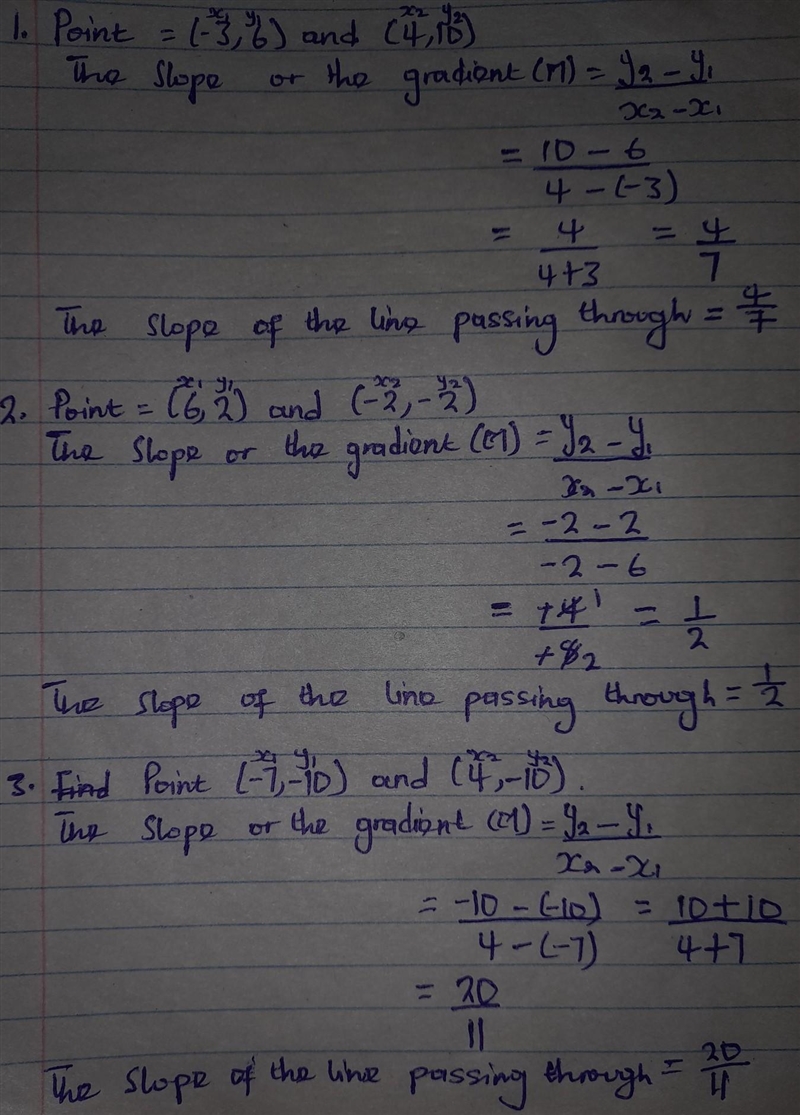 1. Point = (-3, 6) and (4, 10)
x1 y1 x2 y2
The Slope or the gradient (M) = y2 - y1 / x2 - x1
= 10 - 6 / 4 - (-3)
= 4 / 4+3 = 4/7
The slope of the line passing through = 4/7
2. Point = (6, 2) and (-2, -2)
x1 y1 x2 y2
The Slope or the gradient (M) = y2 - y1 / x2 - x1
= -2 - 2 / -2 - 6
= +4 1 / +8 2 = 1/2
The slope of the line passing through = 1/2
3. Find Point (-7, -10) and (4, -10).
x1 y1 x2 y2
The Slope or the gradient (M) = y2 - y1 / x2 - x1
= -10 - (-10) / 4 - (-7) = 10 + 10 / 4 + 7
= 20 / 11
The Slope of the line passing through = 20/11